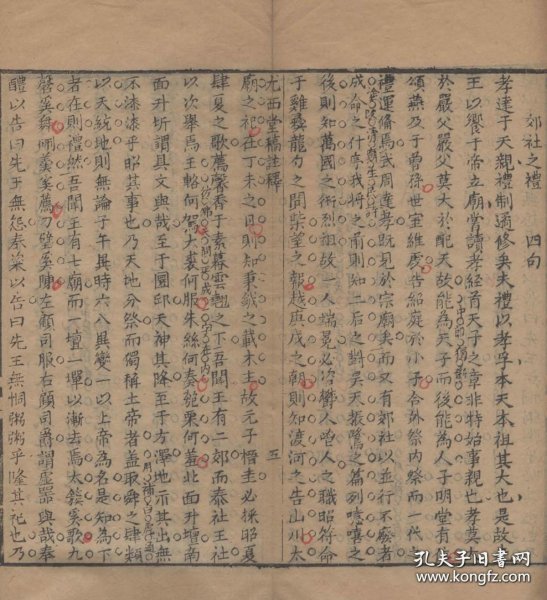 郊社之禮 四句
孝達于天親禮制適修矣夫禮以孝孚本天本祖其大也是故
王以饗于帝立廟嘗讀孝經首天子之章非特始事親也孝莫
於嚴父嚴父莫大於配天故能為天子而後能為人子明堂有
頌燕及子曾孫世室維廣告紹庭於小子合外祭內祭而一代
禮運備焉武周達孝既見於宗廟矣而又有郊社以並行不廢者
成命之什序我將之甫則知二后之對昊天振鷺之篇列噫嘻之
後則知萬國之衎烈祖故一人端冕必咨鬱人鬯人之職昭符命
于雞彝龍勺之間柴望之報越庚戌之朝則知渡河之告山川大
尤西堂稿註釋 五
廟之祀在丁未之日則知秉鉞之載木主故元子搢圭必採昭夏
肆夏之歌薦馨香于素幕雲翹之下吾聞王有二郊而泰社王社
以次舉焉王輅何駕大裘何服朱絲何奏匏栗何羞北面升壇南
面升圻謂具文與哉至于圜邱天神其降至于方澤地示其出無
不洋洋乎昭其事也乃天地分祭而獨稱土帝者蓋取舜之肆類
以天統地則無論子午異時六八異變一以上帝為名是知為下
者在則禮然吾聞王有七廟而一壇一墠以漸去焉太鐘奚歌九
磬奚舞佩羹奚薦刀璧奚陳左顧司服右顧司爵謂虛器與哉奉
醴以告曰先王無怨奉粢以告曰先王無恫粥粥乎隆其祀也乃